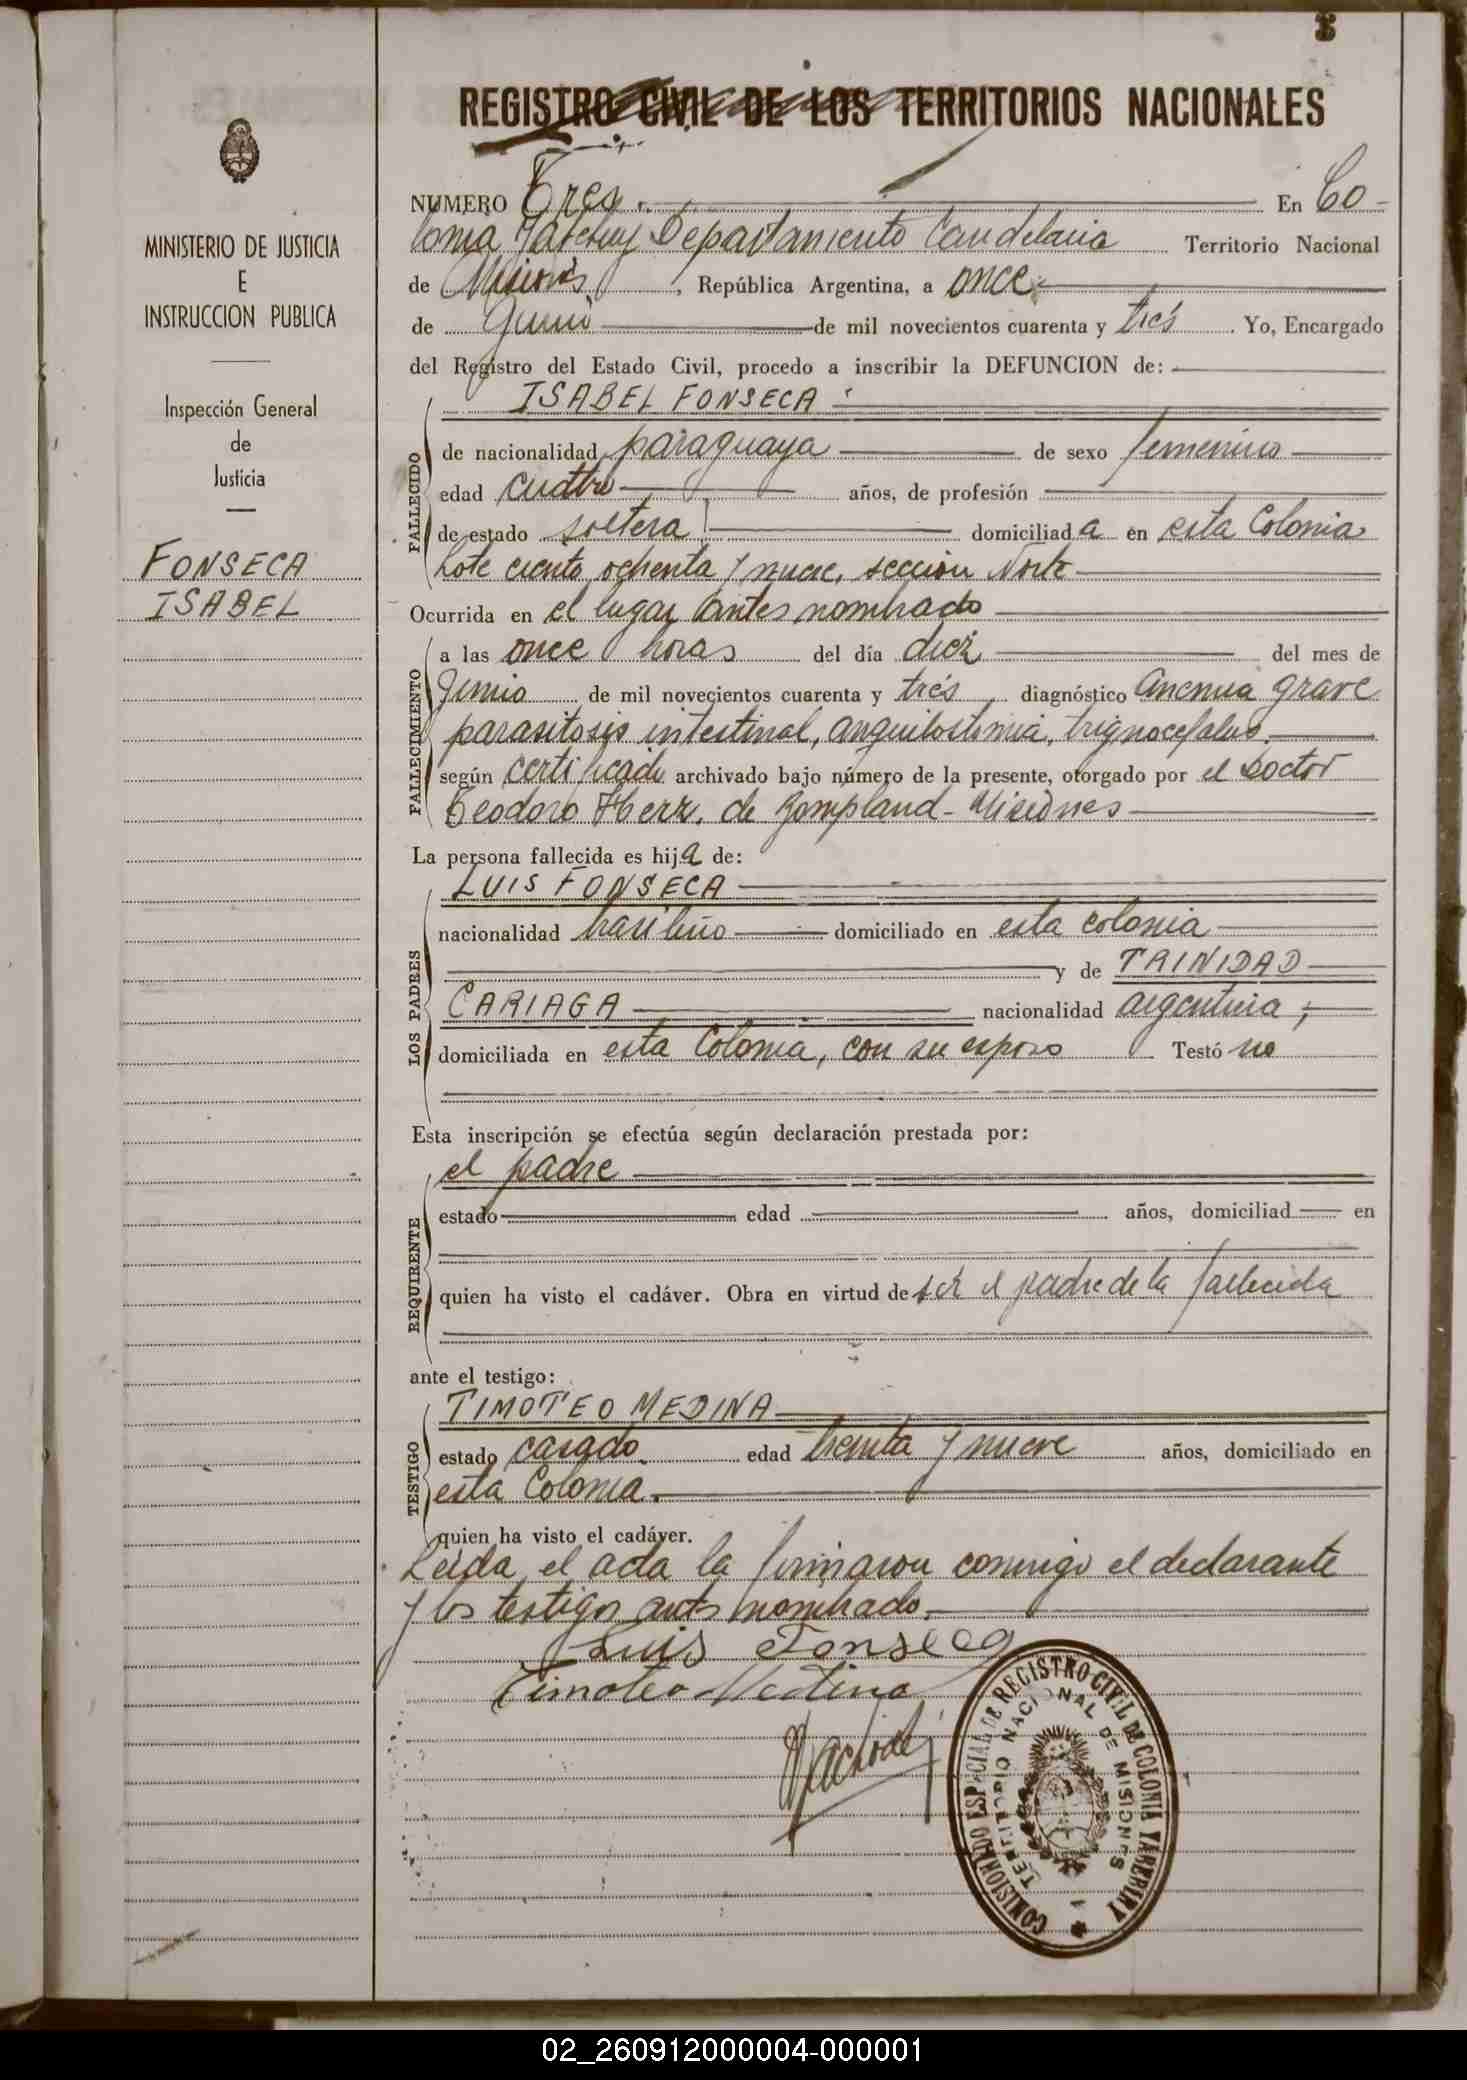 3
REGISTRO CIVIL DE LOS TERRITORIOS NACIONALES
MINISTERIO DE JUSTICIA
E
INSTRUCCION PUBLICA
Inspección General
de
Justicia
FONSECA
ISABEL
NUMERO Tres. En Co-
lonia Departamento Candelaria Territorio Nacional
de Misiones, República Argentina, a once
de Junio de mil novecientos cuarenta y trés. Yo, Encargado
del Registro del Estado Civil, procedo a inscribir la DEFUNCION de:
ISABEL FONSECA
FALLECIDO
de nacionalidad paraguaya de sexo femenino
edad cuatro años, de profesión
de estado soltera domiciliada en esta Colonia
Lote ciento ochenta y nueve, sección Norte
Ocurrida en el lugar antes nombrado
FALLECIMIENTO
a las once horas del día diez del mes de
Junio de mil novecientos cuarenta y trés diagnóstico anemia grave
parasitosis intestinal, anquilostomia,
según certificado archivado bajo número de la presente, otorgado por el Doctor
Teodoro Herr, de Bompland-Misiones
La persona fallecida es hija de:
LOS PADRES
LUIS FONSECA
nacionalidad brasileño domiciliado en esta colonia
y de TRINIDAD
CARIAGA nacionalidad argentina;
domiciliada en esta Colonia, con su esposo Testó no
Esta inscripción se efectúa según declaración prestada por:
REQUIRENTE
el padre
estado edad años, domiciliad en
quien ha visto el cadáver. Obra en virtud de ser el padre de la fallecida
ante el testigo:
TESTIGO
TIMOTEO MEDINA
estado casado. edad treinta y nueve años, domiciliado en
esta Colonia.
quien ha visto el cadáver.
Leida el acta la firmaron conmigo el declarante
y los testigos antes nombrado.
Luis Fonseca
Timoteo Medina
COMISIONADO ESPECIAL DE REGISTRO CIVIL DE COLONIA YABEBIRY
TERRITORIO NACIONAL DE MISIONES
02_260912000004-000001